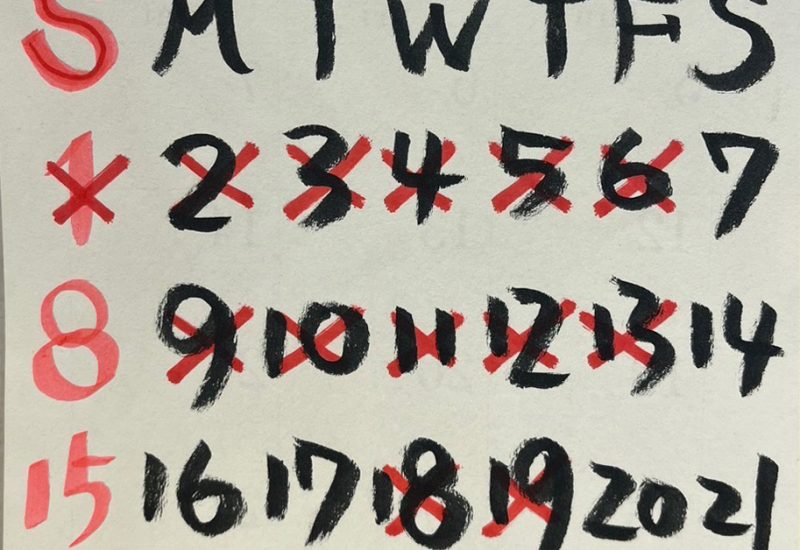 S M T W T F S
1 2 3 4 5 6 7
8 9 10 11 12 13 14
15 16 17 18 19 20 21